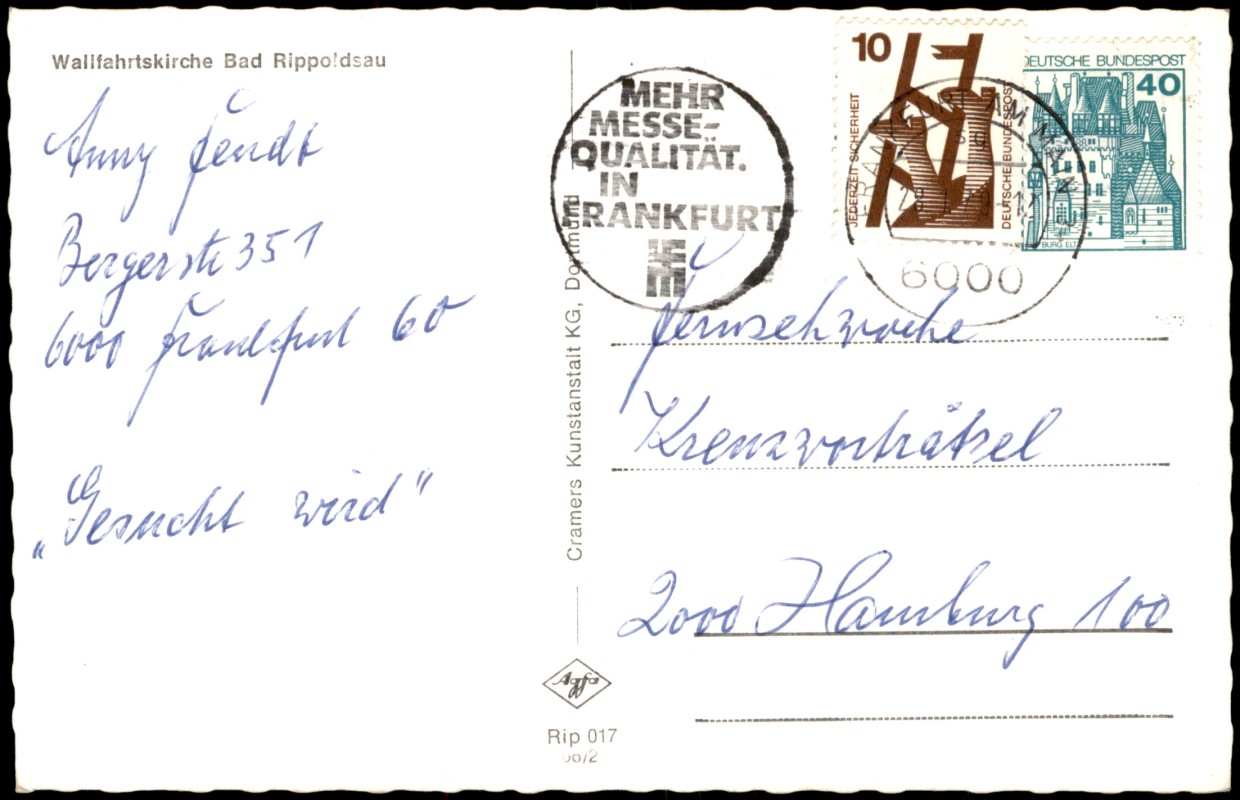 Wallfahrtskirche Bad Rippoldsau
Anny Fendt
Bergerstr 351
6000 Frankfurt 60
„Gesucht wird"
Cramers Kunstanstalt KG, Dortmund
MEHR
MESSE-
QUALITÄT.
IN
FRANKFURT
10
JEDERZEIT SICHERHEIT
DEUTSCHE BUNDESPOST
DEUTSCHE BUNDESPOST
40
BURG ELTZ
FRANKFURT AM MAIN
6000
Fernsehwoche
Kreuzworträtsel
2000 Hamburg 100
Agfa
Rip 017